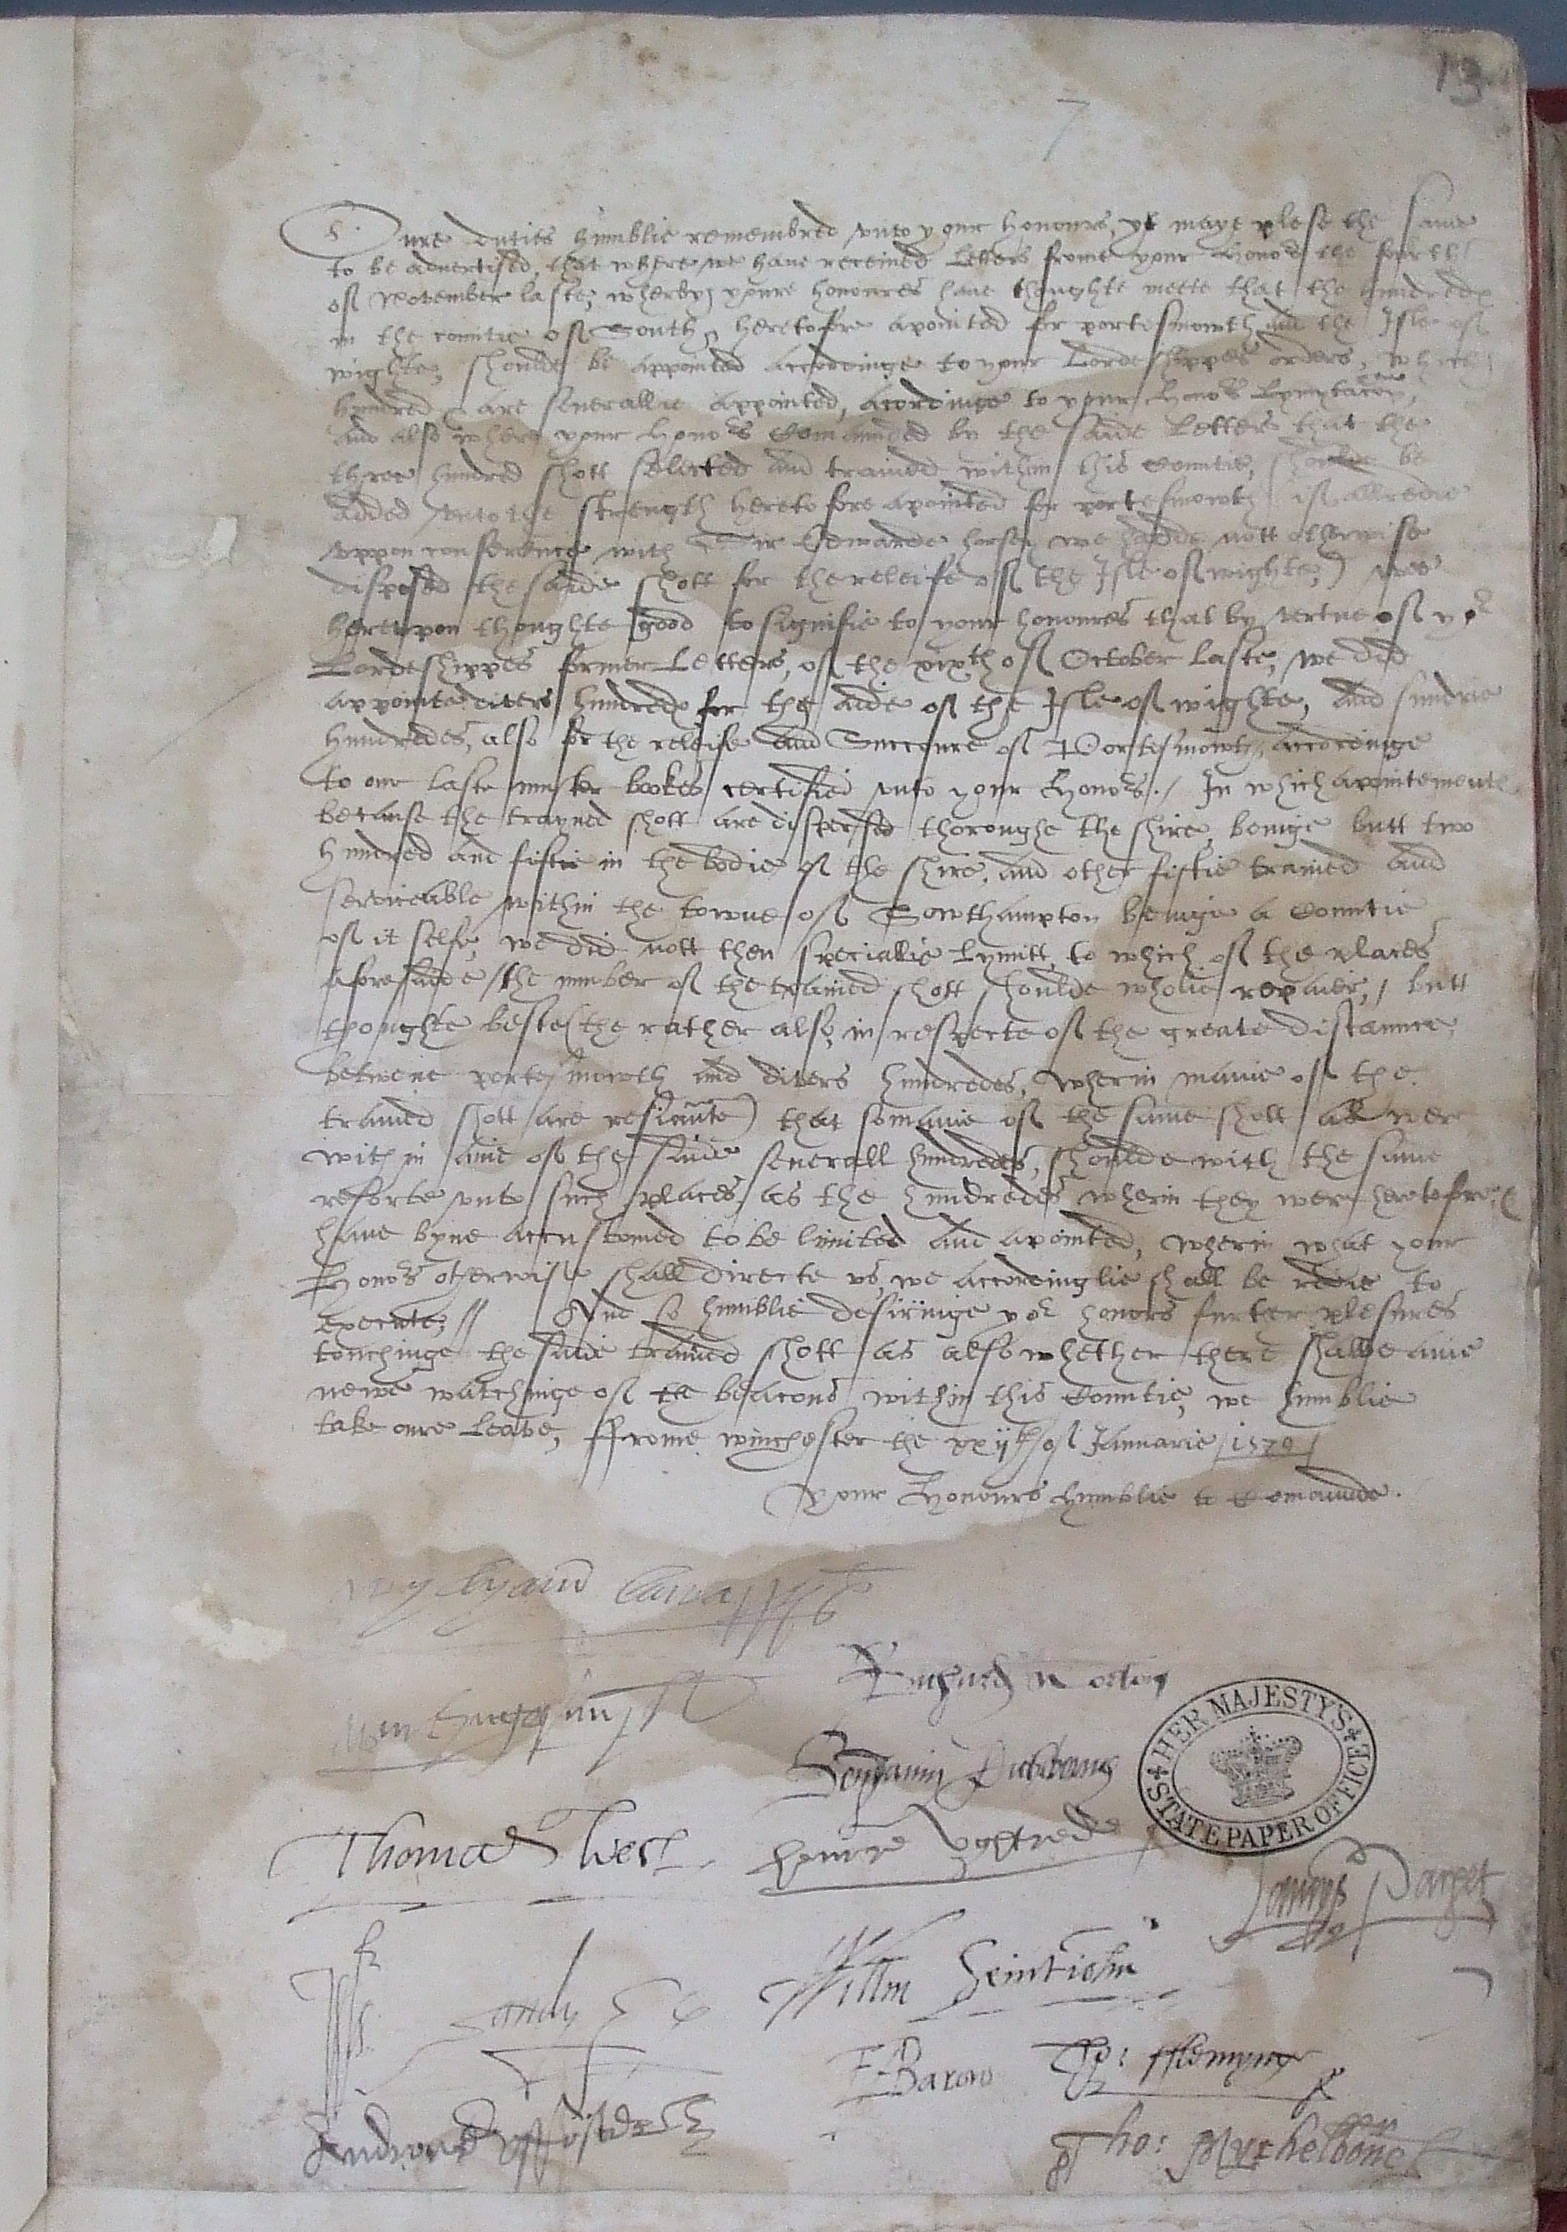 13
7
Oure duties humblie remembred vnto your honours, yt maye plese the same
to be advertised, that where we haue receiued Letters frome your honors the fourth
of November laste, wherby youre honoures haue thoughte meete that the hundreds
in the countie of South heretofore apointed for portesmowth and the Isle of
wighte, shoulde be appointed accordinge to your Lordeshippes orders, which
hundreds are seuerallie appointed, acordinge to your honors Lymytacon,
And also where your honors Comaunded by the saide Letters that the
three hundred shott selected and trained within this Countie, shoulde be
added vnto the strength heretofore apointed for portesmowth if allredie
vppon conference with Sir Edwarde horsey we hadde nott otherwise
disposed the saide shott for the releife off the Isle of wighte,) wee
herevpon thoughte good to signifie to your honoures that by vertue of yor
Lordeshippes former Letters, of the xixth of October laste, we did
appointe divers hundreds for the aide of the Isle of wighte, And sundrie
hundredes, also for the releife and Succoure of Portesmowth, accordinge
to our laste muster bookes certified vnto your honors./ In which apointemente
because the trayned shott are dispersed thoroughe the shire, beinge butt two
hundred and fiftie in the bodie of the shire, and other fiftie trained and
serviceable within the towne of Sowthampton beinge a Countie
of it selfe, we did nott then speciallie Lymitt to which of the places
aforesaide the number of the trained shott shoulde wholie repaier,/ butt
thoughte beste (the rather also, in respecte of the greate distaunce,
betwene portesmowth and divers hundredes, wherin manie of the
trained shott are resiaunte) that so manie of the same shott as wer
within anie of the saide seuerall hundredes, shoulde with the same
resorte vnto such places, as the hundredes wherin they wer heretofore,
haue byne accustomed to be limited and apointed, wherin what your
honors otherwise shall directe vs, we accordinglie shall be redie to
execute;// And so humblie desiringe yor honors furter plesures
touchinge the saide trained shott as also whether there shalbe anie
newe watchinge of the beacons within this Countie, we humblie
take oure Leave, ffrome winchester the xxijth of Januarie 1579
Your honours humblie to Comaunde.
Richard Norton
Beniamin Tichborne
Thomas West
henrie Vghtrede
Jamys Paget
Willm Seintiohn
F Barow
Tho: fflemyng
Tho: Mychelborne
HER MAJESTY'S STATE PAPER OFFICE